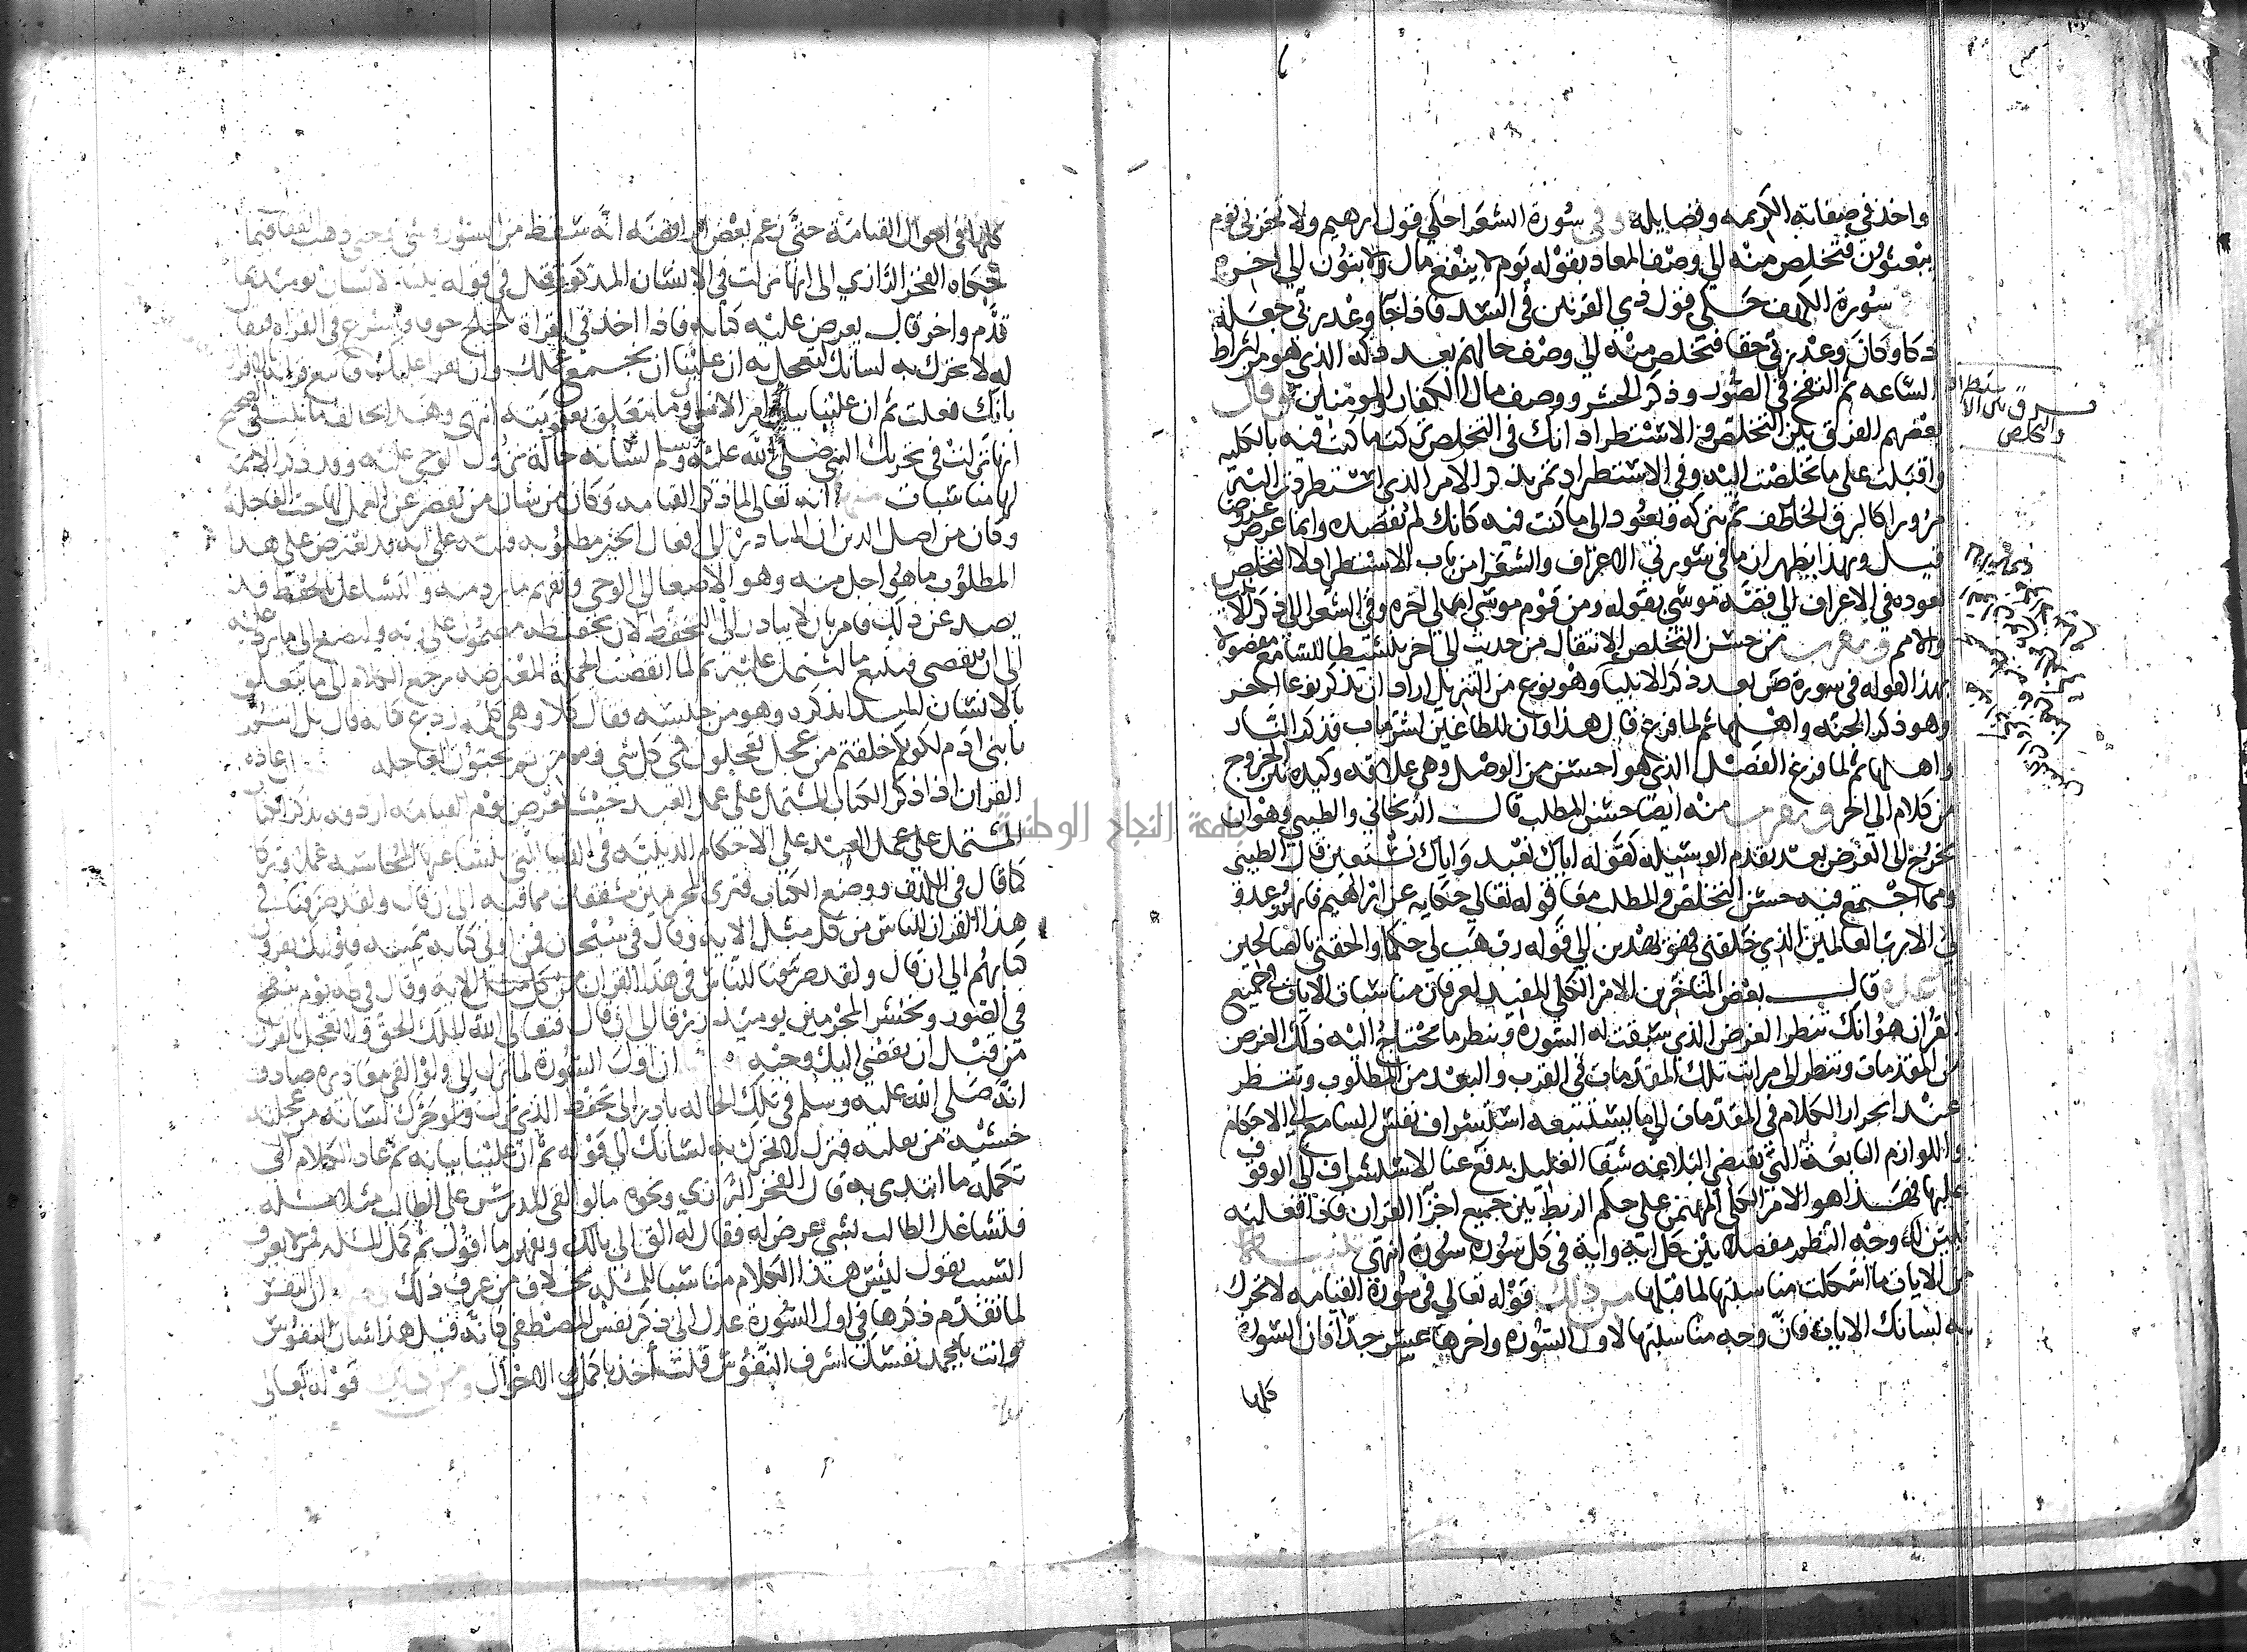 واخذ في صفاته الكريمه وفضايله وفي سورة الشعرا حكي قول ابرهيم ولا تخزني يوم
يبعثون فتخلص منه الي وصف المعاد بقوله يوم لا ينفع مال ولا بنون الي اخره
سورة الكهف حكي قول ذي القرنين في السد فاذا جا وعد ربي جعله
دكا وكان وعد ربي حقا فتخلص منه الي وصف حالهم بعد دكه الذي هو من اشراط
الساعه ثم النفخ في الصور وذكر الحشر ووصف مال الكفار والمومنين وقال
بعضهم الفرق بين التخلص والاستطراد انك في التخلص تركت ما كنت فيه بالكليه
واقبلت علي ما تخلصت اليه وفي الاستطراد تمر بذكر الامر الذي استطردت اليه
مرورا كالبرق الخاطف ثم تتركه وتعود الي ما كنت فيه كانك لم تقصده وانما عرض عروضا
قيل وبهذا يظهر ان ما في سورتي الاعراف والشعرا من باب الاستطراد لا التخلص
لعوده في الاعراف الي قصة موسي بقوله ومن قوم موسي امه الي اخره وفي الشعرا الي ذكر الانبيا
والامم ويقرب من حسن التخلص الانتقال من حديث الي اخر تنشيطا للسامع مفصولا
بهذا لقوله في سورة ص بعد ذكر الانبيا وهو نوع من التنزيل اراد ان يذكر نوعا اخر
وهو ذكر الجنه واهلها ثم لما فرغ قال هذا وان للطاغين لشر ماب فذكر النار
واهلها ثم لما فرغ الفصل الذي هو احسن من الوصل وهي علاقه وكيده بين الخروج
من كلام الي اخر ويقرب منه ايضا حسن المطلب قال الزنجاني والطيبي وهو ان
يخرج الي الغرض بعد تقدم الوسيله كقوله اياك نعبد واياك نستعين قال الطيبي
ومما اجتمع فيه حسن التخلص والمطلب معا قوله تعالي حكايه عن ابراهيم فانهم عدو
لي الا رب العالمين الذي خلقني فهو يهدين الي قوله رب هب لي حكما والحقني بالصالحين
قاعدة قال بعض المتاخرين الامر الكلي المفيد لعرفان مناسبات الايات في جميع
القران هو انك تنظر الغرض الذي سيقت له السورة وتنظر ما يحتاج اليه ذلك الغرض
من المقدمات وتنظر الي مراتب تلك المقدمات في القرب والبعد من المطلوب وتنظر
عند انجرار الكلام في المقدمات الي ما يستتبعه استشراف نفس السامع الي الاحكام
واللوازم التابعة التي تقتضي البلاغه شفا الغليل بدفع عنا الاستشراف الي الوقوف
عليها فهذا هو الامر الكلي المهيمن علي حكم الربط بين جميع اجزا القران فاذا فعلته
تبين لك وجه النظم مفصلا بين كل اية واية في كل سورة سورة انتهي تنبيه
من الايات ما اشكلت مناسبتها لما قبلها من ذلك قوله تعالي في سورة القيامه لا تحرك
به لسانك الايات فان وجه مناسبتها لاول السوره واخرها عسر جدا فان السورة
كلها
فرق بين الاستطراد
والتخلص
كلها في احوال القيامة حتي زعم بعض الرافضه انه سقط من السورة شي وحتي ذهب القفال فيما
حكاه الفخر الرازي الي انها نزلت في الانسان المذكور قبل في قوله ينبا الانسان يومئذ بما
قدم واخر قال يعرض عليه كتابه فاذا اخذ في القراة تلجلج خوفا فاسرع في القراه فيقال
له لا تحرك به لسانك لتعجل به ان علينا ان نجمع عملك وان نقرا عليك فاتبع قرانه بالاقرار
بانك فعلت ثم ان علينا بيان امر الانسان وما يتعلق بعقوبته انتهي وهذا يخالف ما ثبت في الصحيح
انها نزلت في تحريك النبي صلي الله عليه وسلم لسانه حالة نزول الوحي عليه وقد ذكر الائمه
لها مناسبات منها انه تعالي لما ذكر القيامه وكان من شان من يقصر عن العمل لها حب العاجلة
وكان من اصل الدين ان المبادره الي افعال الخير مطلوبه فنبه علي انه قد يعترض علي هذا
المطلوب ما هو اجل منه وهو الاصغا الي الوحي وتفهم ما يرد منه والتشاغل بالحفظ قد
يصد عن ذلك فامر بان لا يبادر الي التحفظ لان تحفيظه مضمون علي ربه وليصغ الي ما يرد عليه
الي ان ينقضي فيتبع ما اشتمل عليه ثم لما انقضت الجملة المعترضه رجع الكلام الي ما يتعلق
بالانسان المبتدا بذكره وهو من جنسه فقال كلا وهي كلمة ردع كانه قال بل انتم
يا بني ادم لكونكم خلقتم من عجل تعجلون في كل شي ومن ثم تحبون العاجله ومنها ان عاده
القران اذا ذكر الكتاب المشتمل علي عمل العبد حيث يعرض يوم القيامه اردفه بذكر الكتاب
المشتمل علي عمل العبد علي الاحكام الدينيه في الدنيا التي تنشا عنها المحاسبه عملا وتركا
كما قال في الكهف ووضع الكتاب فتري المجرمين مشفقين مما فيه الي ان قال ولقد صرفنا في
هذا القران للناس من كل مثل الايه وقال في سبحان فمن اوتي كتابه بيمينه فاولئك يقرون
كتابهم الي ان قال ولقد صرفنا للناس في هذا القران من كل مثل الاية وقال في طه يوم ينفخ
في الصور ونحشر المجرمين يومئذ زرقا الي ان قال فتعالي الله الملك الحق ولا تعجل بالقران
من قبل ان يقضي اليك وحيه ومنها ان اول السورة لما نزل الي ولو القي معاذيره صادف
انه صلي الله عليه وسلم في تلك الحاله بادر الي تحفظ الذي نزل وحرك لسانه من عجلته
خشية من تفلته فنزل لا تحرك به لسانك الي قوله ثم ان علينا بيانه ثم عاد الكلام الي
تكمله ما ابتدي به قال الفخر الرازي ونحوه ما لو القي المدرس علي الطالب مثلا مسله
فتشاغل الطالب بشي عرض له فقال له الق الي بالك وتفهم ما اقول ثم كمل المسله فمن لا يعرف
السبب يقول ليس هذا الكلام مناسبا للمسله بخلاف من عرف ذلك ومنها ان النفس
لما تقدم ذكرها في اول السورة عدل الي ذكر نفس المصطفي كانه قيل هذا شان النفوس
وانت يا محمد نفسك اشرف النفوس فلتاخذ باكمل الاحوال ومن ذلك قوله تعالي